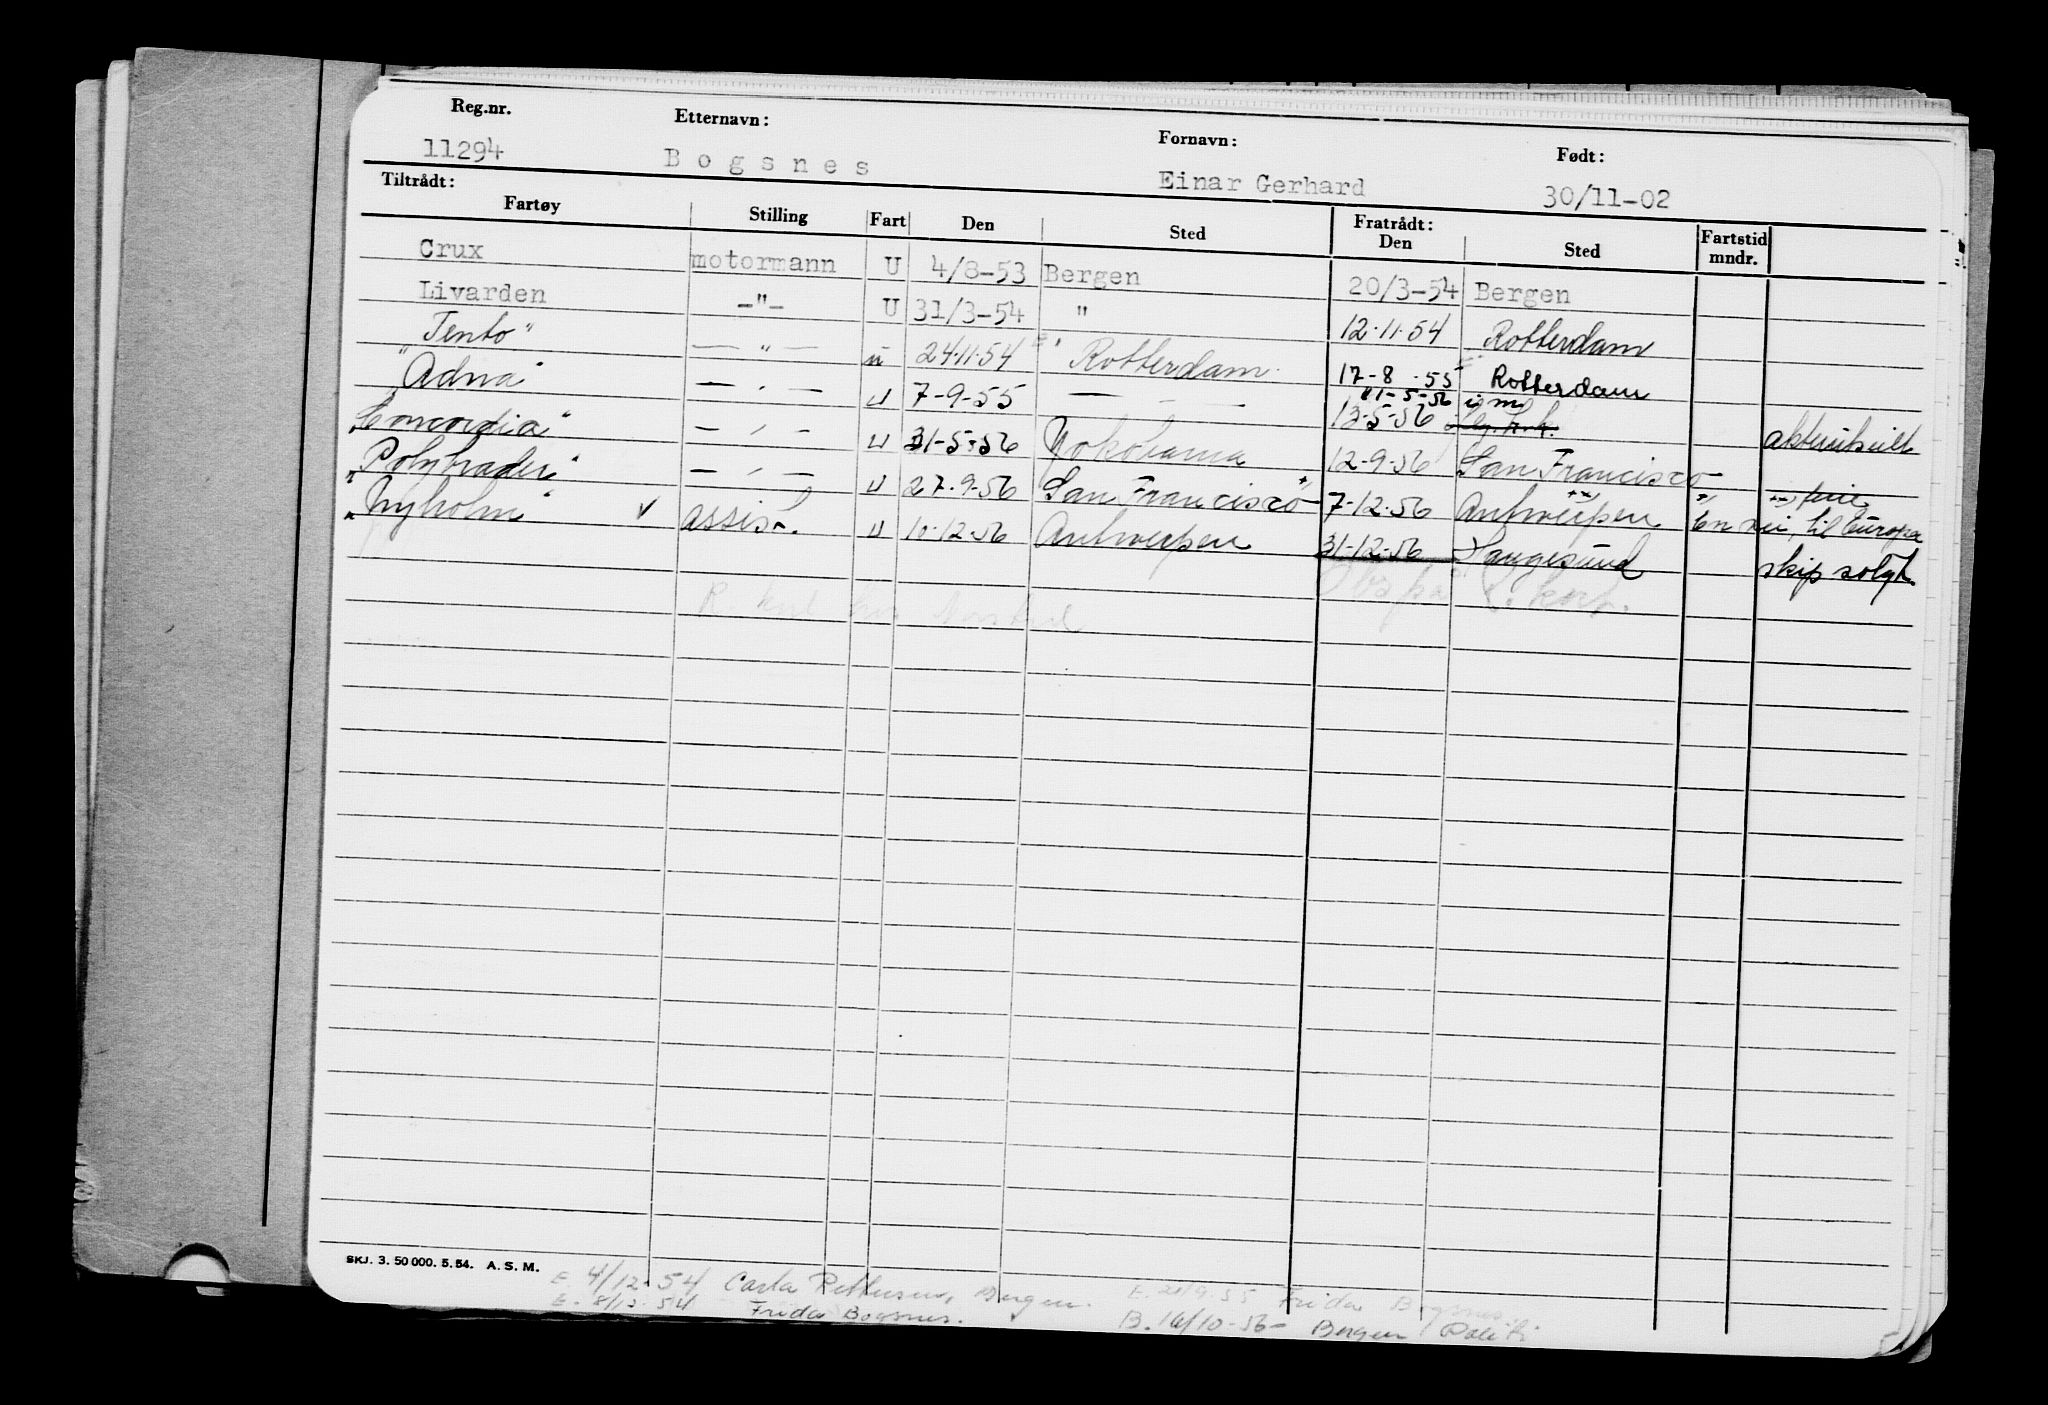 Reg.nr. Etternavn: Fornavn: Født:
11294 Bogsnes Einar Gerhard 30/11-02
Tiltrådt: Fratrådt:
Fartøy Stilling Fart Den Sted Den Sted Fartstid mndr.
Crux motormann U 4/8-53 Bergen 20/3-54 Bergen
Livarden -"- U 31/3-54 " 12.11.54 Rotterdam
"Tento" — " — u 24.11.54 Rotterdam 17-8.55 Rotterdam
"Adna" — " — u 7-9-55 — 11-5-56
13-5-56 akterutseilt
"Concordia" — " — u 31-5-56 Yokohama 12-9-56 San Francisco
"Polytrader" — " — u 27.9.56 San Francisco 7-12-56 Antwerpen En til Europa
"Nyholm" v assist. u 10-12-56 Antwerpen 31-12-56 Haugesund skip solgt.
SKJ. 3. 50 000. 5. 54. A. S. M.
E. 4/12-54 Carla Bergen. E. 21/9-55 Frida Bogsnes.
E. 8/12-54 Frida Bogsnes. B. 16/10-56 - Bergen Politi